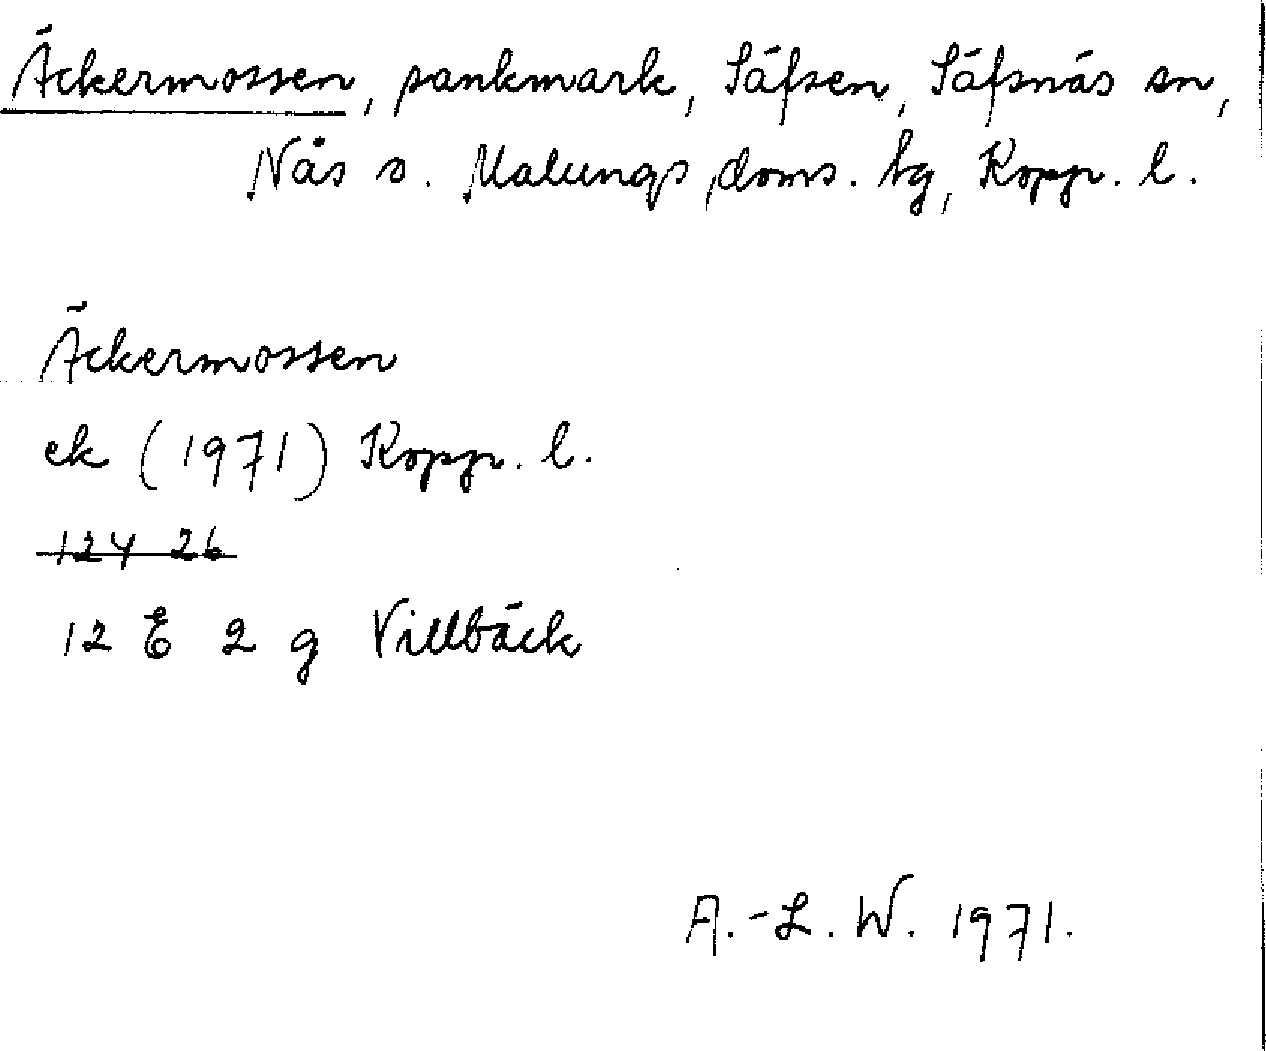 Äckermossen, sankmark, Säfsen, Säfsnäs sn,
Nås o. Malungs doms. tg, Kopp. l.
Äckermossen
ek (1971) Kopp. l.
124 26
12 E 2 g Villbäck
A.-L. W. 1971.